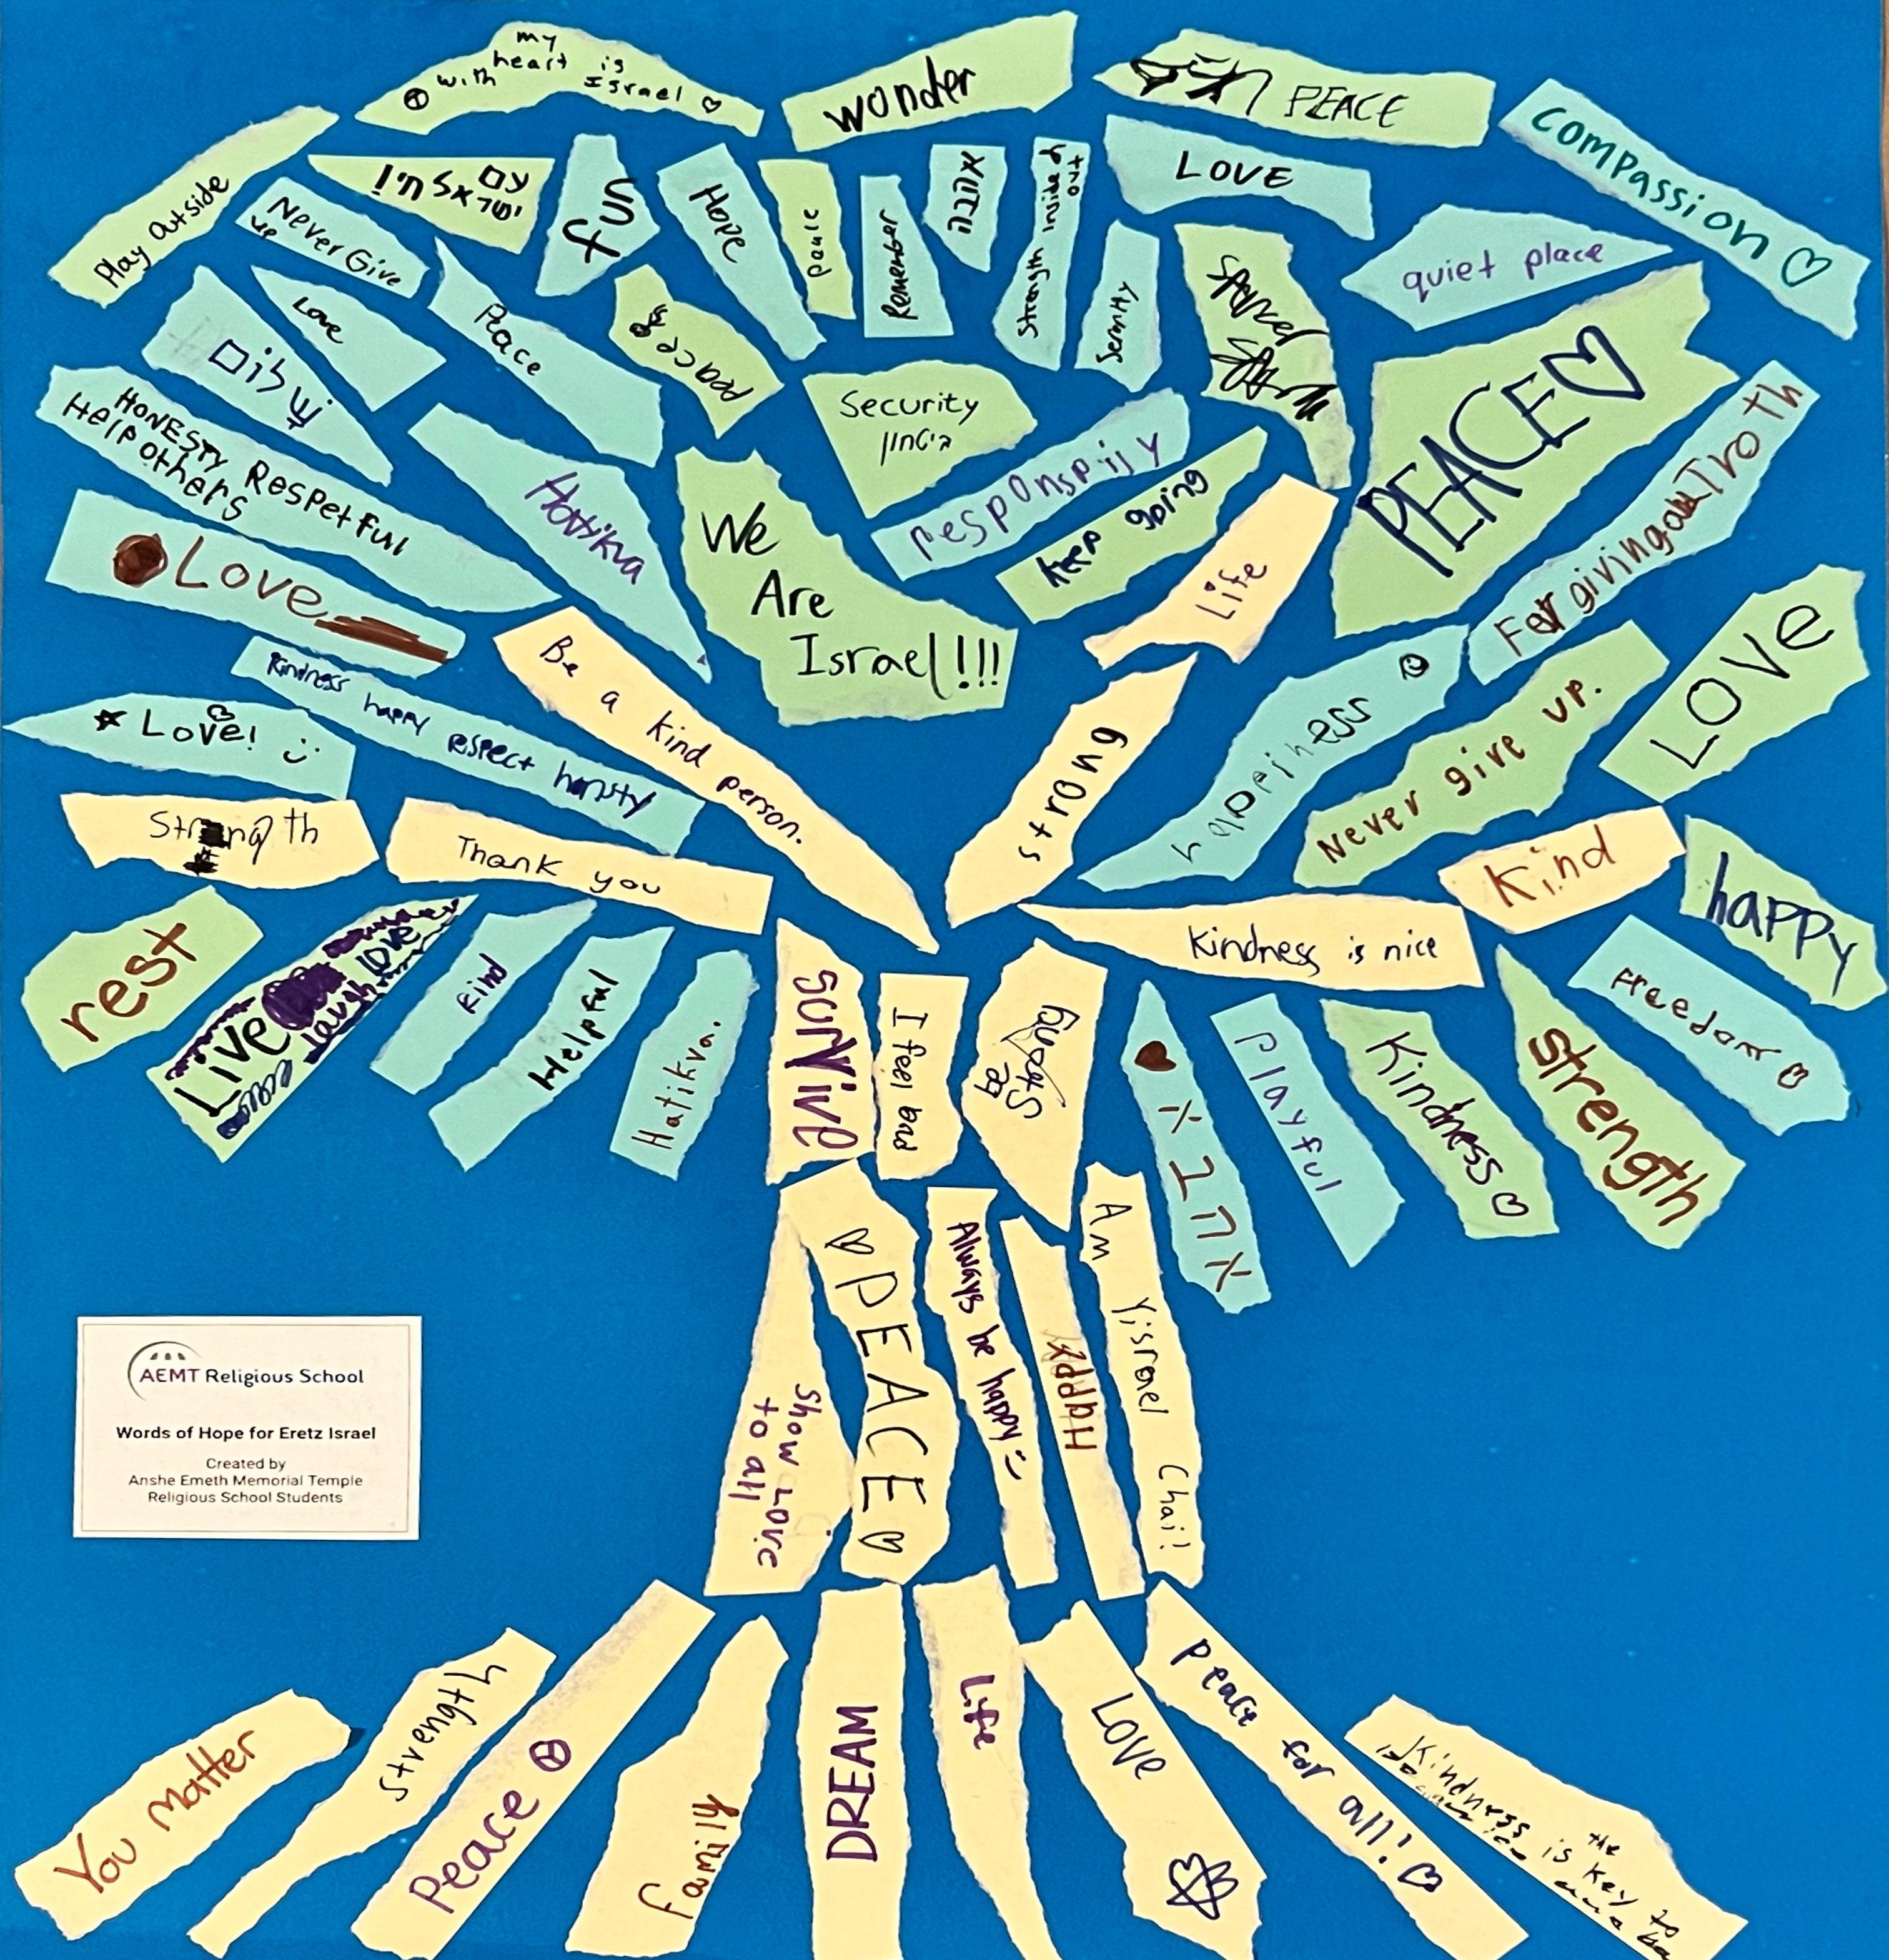 my
heart is
with Israel
wonder
PEACE
COMPASSION
Play Outside
עם
ישראל חי!
Never Give
up
Fun
Hope
peace
Remember
אהבה
Strength inside &
out
LOVE
quiet place
Love
שלום
Peace
Peace
Security
ביטחון
Serenity
PEACE
HONESTY Respetful
Help others
Hatikva
We
Are
Israel!!!
responspijy
keep going
Life
Love
Be a kind person.
strong
happiness
Never give up.
LOVE
Kindness happy respect honsty
Love!
Thank you
Kindness is nice
Kind
happy
rest
Live
laugh love
Kind
Helpful
Hatikva.
survive
I feel bad
אהבה
Playful
Kindness
Strength
Freedom
PEACE
Always be happy
Happy
Am Yisrael Chai!
Show Love
to all
AEMT Religious School
Words of Hope for Eretz Israel
Created by
Anshe Emeth Memorial Temple
Religious School Students
You Matter
strength
Peace
family
DREAM
Life
Love
peace for all!
Kindness is the key to